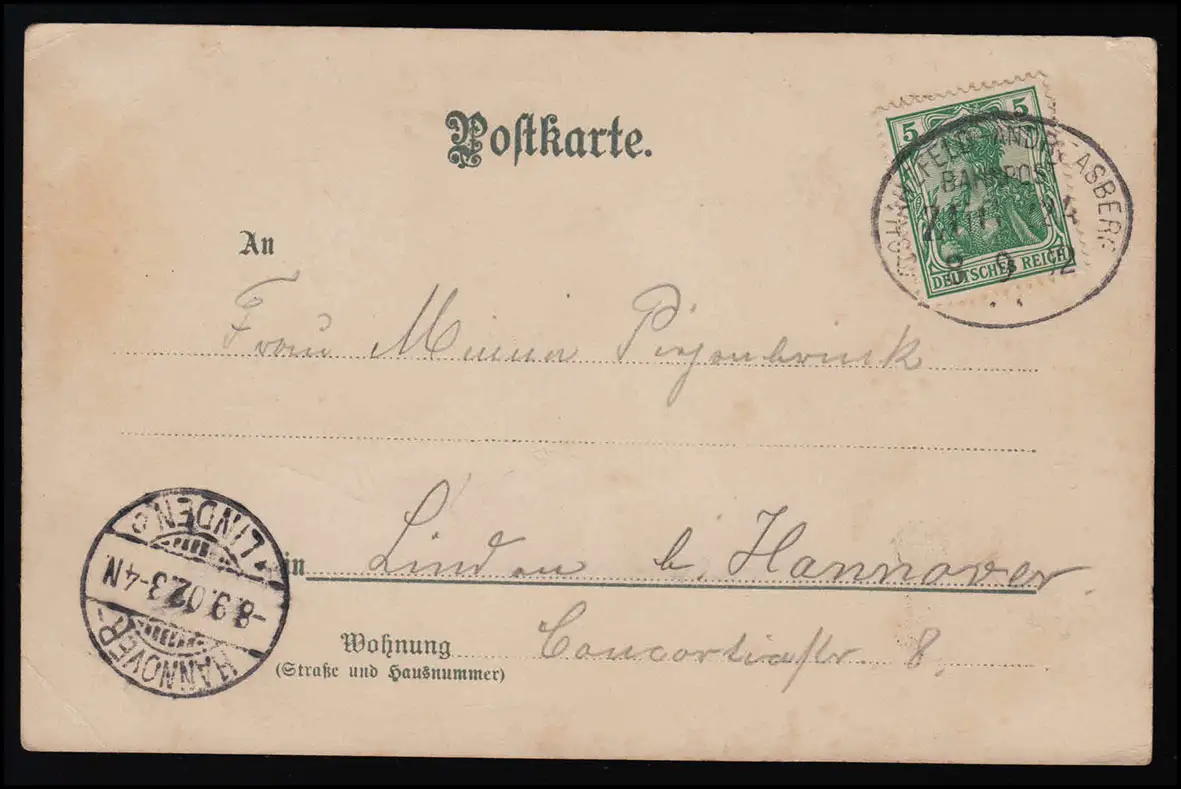 Postkarte.
5 5
DEUTSCHES REICH
ANDREASBERG
BAHNPOST
ZUG
8 9 2
An
Frau Minna Piepenbrink
in Linden b. Hannover
Wohnung Concordiastr 8,
(Straße und Hausnummer)
HANNOVER-
-8.9.02.3-4N.
LINDEN